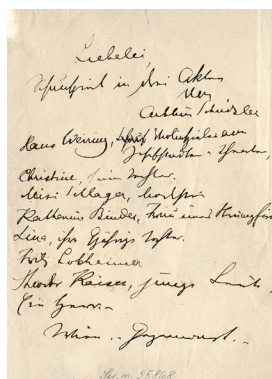 Liebelei,
Schauspiel in drei Akten
von
Arthur Schnitzler
Hans Weiring, Violinspieler am
Josefstädter - Theater.
Christine, seine Tochter.
Mizi Schlager, Modistin
Katharina Binder, Frau eines Strumpfwirkers
Lina, ihre 9jährige Tochter.
Fritz Lobheimer
Theodor Kaiser, junge Leute.
Ein Herr. -
Wien. - Gegenwart. -